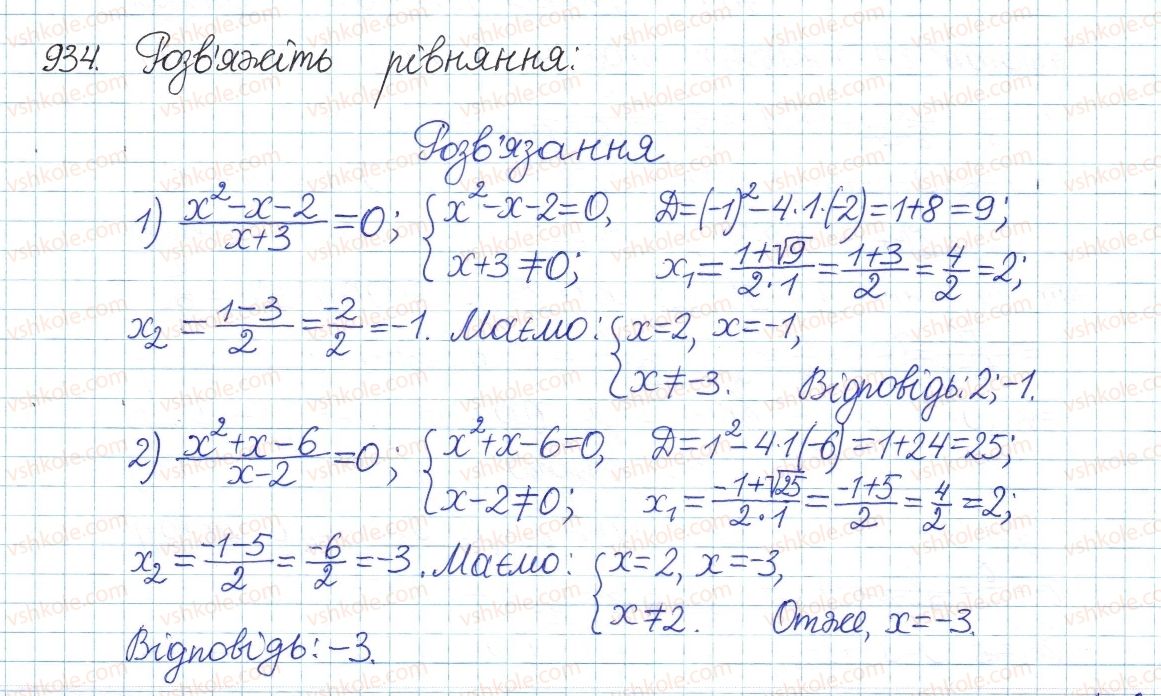 934. Розв'яжіть рівняння:
Розв'язання
1) (x²-x-2)/(x+3) = 0; { x²-x-2=0, Д=(-1)²-4·1·(-2)=1+8=9;
x+3≠0; x₁ = (1+√9)/(2·1) = (1+3)/2 = 4/2 = 2;
x₂ = (1-3)/2 = -2/2 = -1. Маємо: { x=2, x=-1,
x≠-3. Відповідь: 2; -1.
2) (x²+x-6)/(x-2) = 0; { x²+x-6=0, Д=1²-4·1(-6)=1+24=25;
x-2≠0; x₁ = (-1+√25)/(2·1) = (-1+5)/2 = 4/2 = 2;
x₂ = (-1-5)/2 = -6/2 = -3. Маємо: { x=2, x=-3,
x≠2. Отже, x=-3.
Відповідь: -3.
vshkole.com